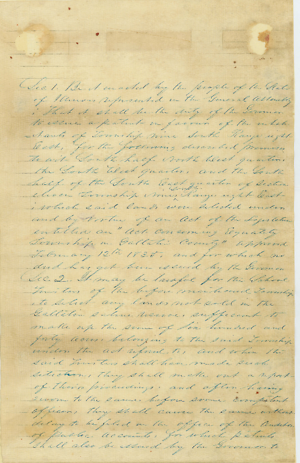 Sec 1. Be it enacted by the people of the State
of Illinois, represented in the General Assembly
That it shall be the duty of the Governor
to issue a patent in favor of the
of Township nine South Range eight
East, for the following described premises
to wit South half North West quarter
the South West quarter and the South
half of the South East quarter of Section
eleven Township nine Range eight East
which said lands were
under and by virtue of an Act of the Legislature
entitled an "Act concerning Equality
Township in Gallatin County" approved
February 12th 1835. and for which no
deed has yet been issued by the Governor
Sec 2. It may be lawful for the School
Trustees of the before mentioned Township
to select any lands not sold in the
Gallatin saline reserve sufficient to
make up the sum of six hundred and
forty acres belonging to the said Township
under the act referred to, and when the
said trustees shall have made such
selection, they shall make out a report
of their proceedings, and after being
sworn to the same before some competent
officer, they shall cause the same without
delay to be filed in the office of the Auditor
of public accounts, for which patents
shall also be issued by the Governor to